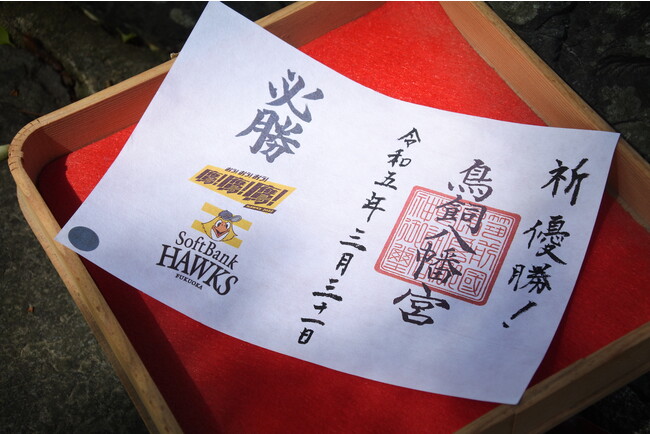 祈優勝!
鳥飼八幡宮
令和五年三月三十一日
必勝
鷹!鷹!鷹!
SoftBank
HAWKS
FUKUOKA